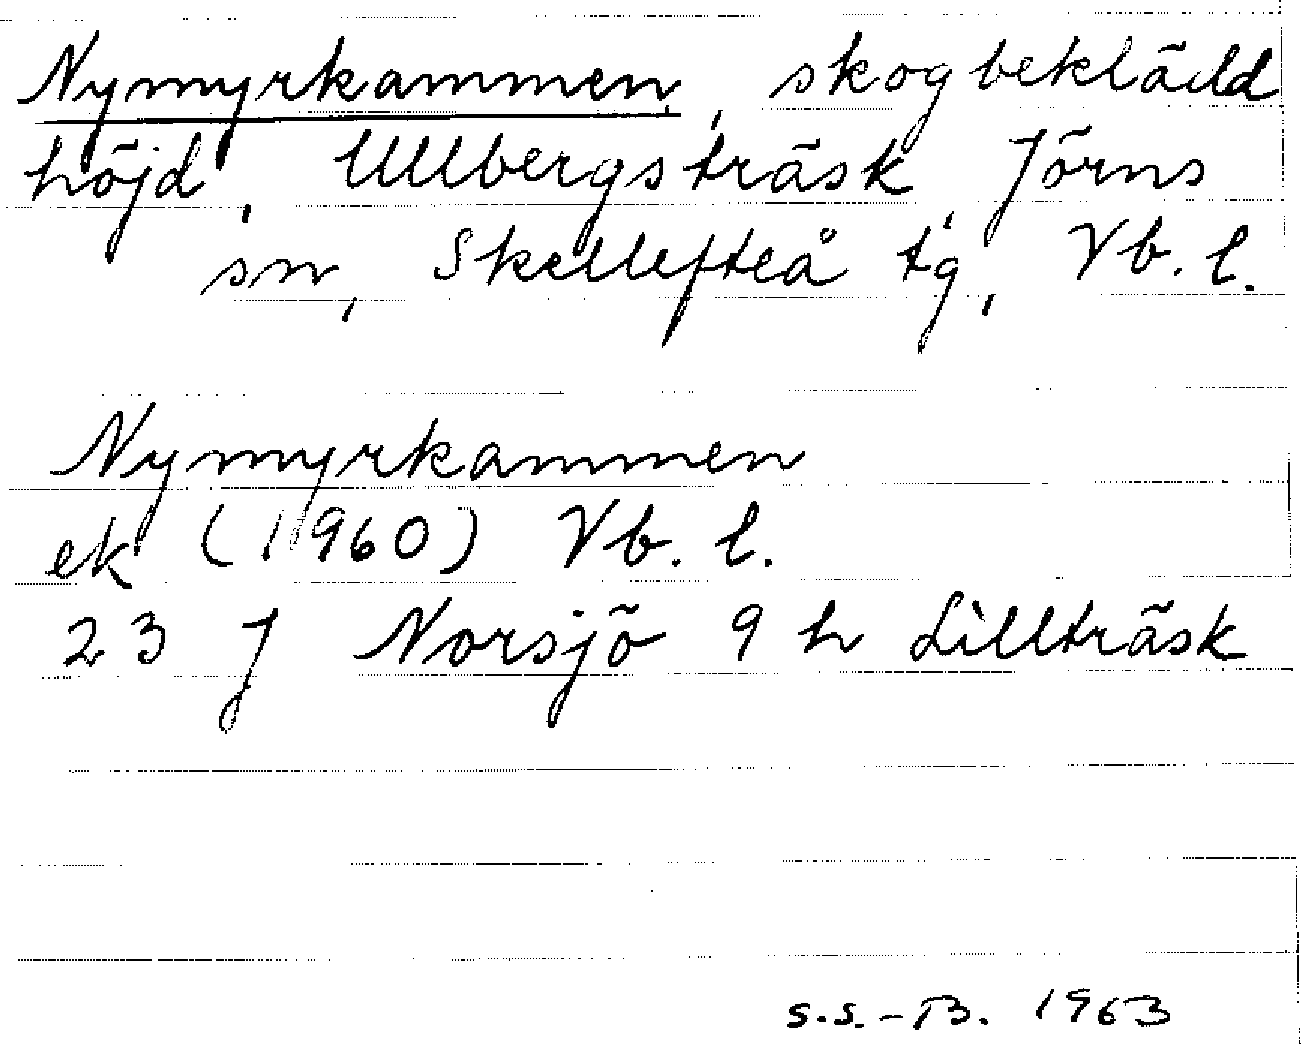 Nymyrkammen, skogbeklädd
höjd, Ullbergsträsk, Jörns
sn, Skellefteå tg, Vb. l.
Nymyrkammen
ek (1960) Vb. l.
23 J Norsjö 9 h Lillträsk
S.S.-B. 1963